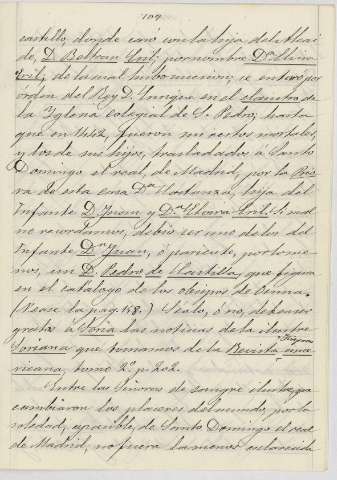 109
castillo, donde casó con la hija del Alcai-
de, D. Beltran Eril, por nombre D.ª Elvira
Eril; de la cual hubo sucesion; se enterró por
órden del Rey D. Enrique en el claustro de
la Yglesia colegial de S. Pedro; hasta
que en 1442, fueron sus restos mortales,
y dos de sus hijos, trasladados á Santo
Domingo el real, de Madrid, por la Prio-
ra de esta casa D.ª Costanza, hija del
Infante D. Juan y D.ª Elvira Eril. Si mal
no recordamos, debió ser uno de los del
Infante D.n Juan, ó pariente, por lo me-
nos, un D. Pedro de Castilla, que figura
en el catalogo de los obispos de Osma.
(Vease la pag. 148.) Séalo, ó no, débense
gratas á Soria las noticias de la ilustre
Soriana que tomamos de la Revista
ricana, tomo 2.º p. 202.
Entre las Señoras de sangre ilustre que
cambiaron los placeres del mundo, por la
soledad, apacible, de Santo Domingo el real
de Madrid, no fuera la menos esclarecida